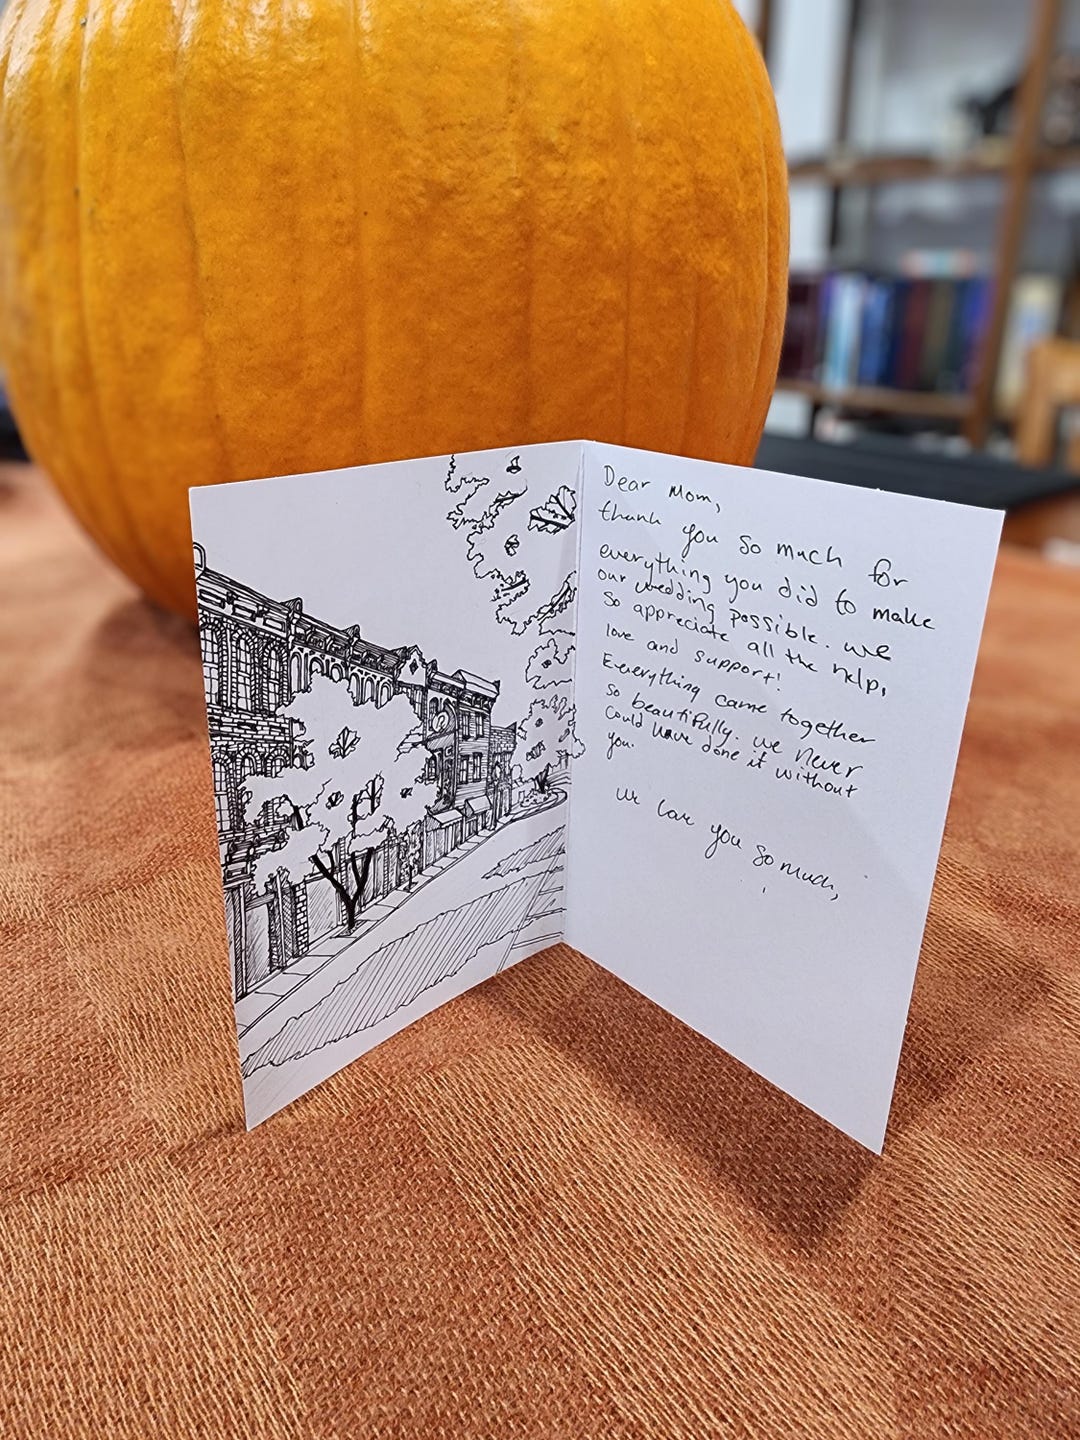 Dear Mom,
thank you so much for
everything you did to make
our wedding possible. we
so appreciate all the help,
love and support!
Everything came together
so beautifully. we never
could have done it without
you.
we love you so much,